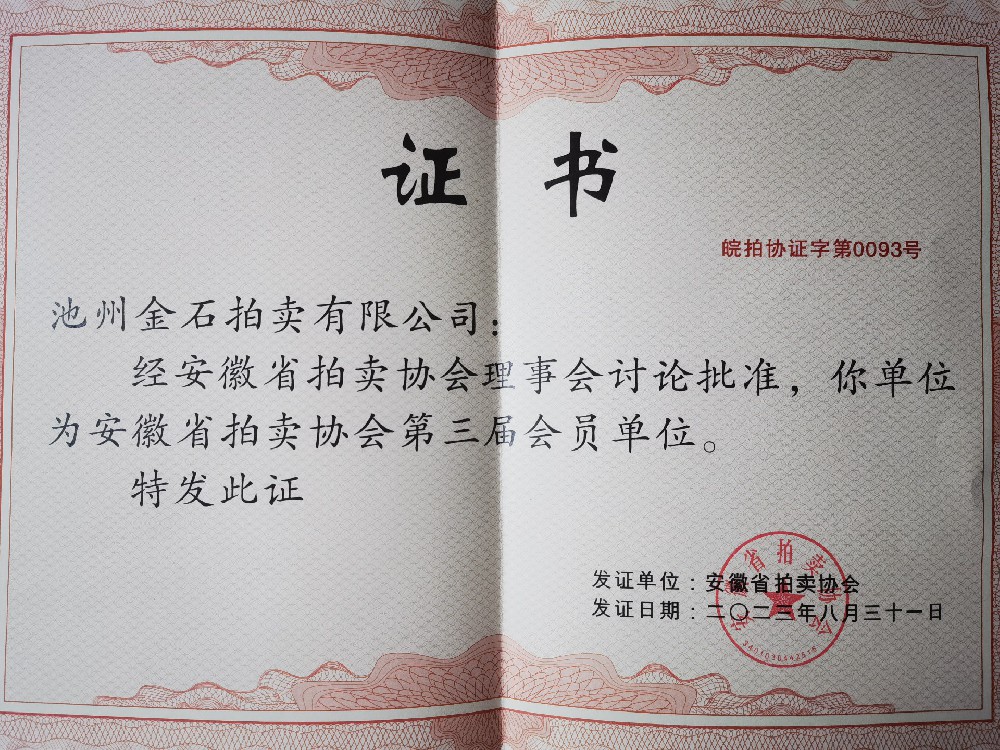 证书
皖拍协证字第0093号
池州金石拍卖有限公司：
经安徽省拍卖协会理事会讨论批准，你单位
为安徽省拍卖协会第三届会员单位。
特发此证
发证单位：安徽省拍卖协会
发证日期：二〇二三年八月三十一日
安徽省拍卖协会